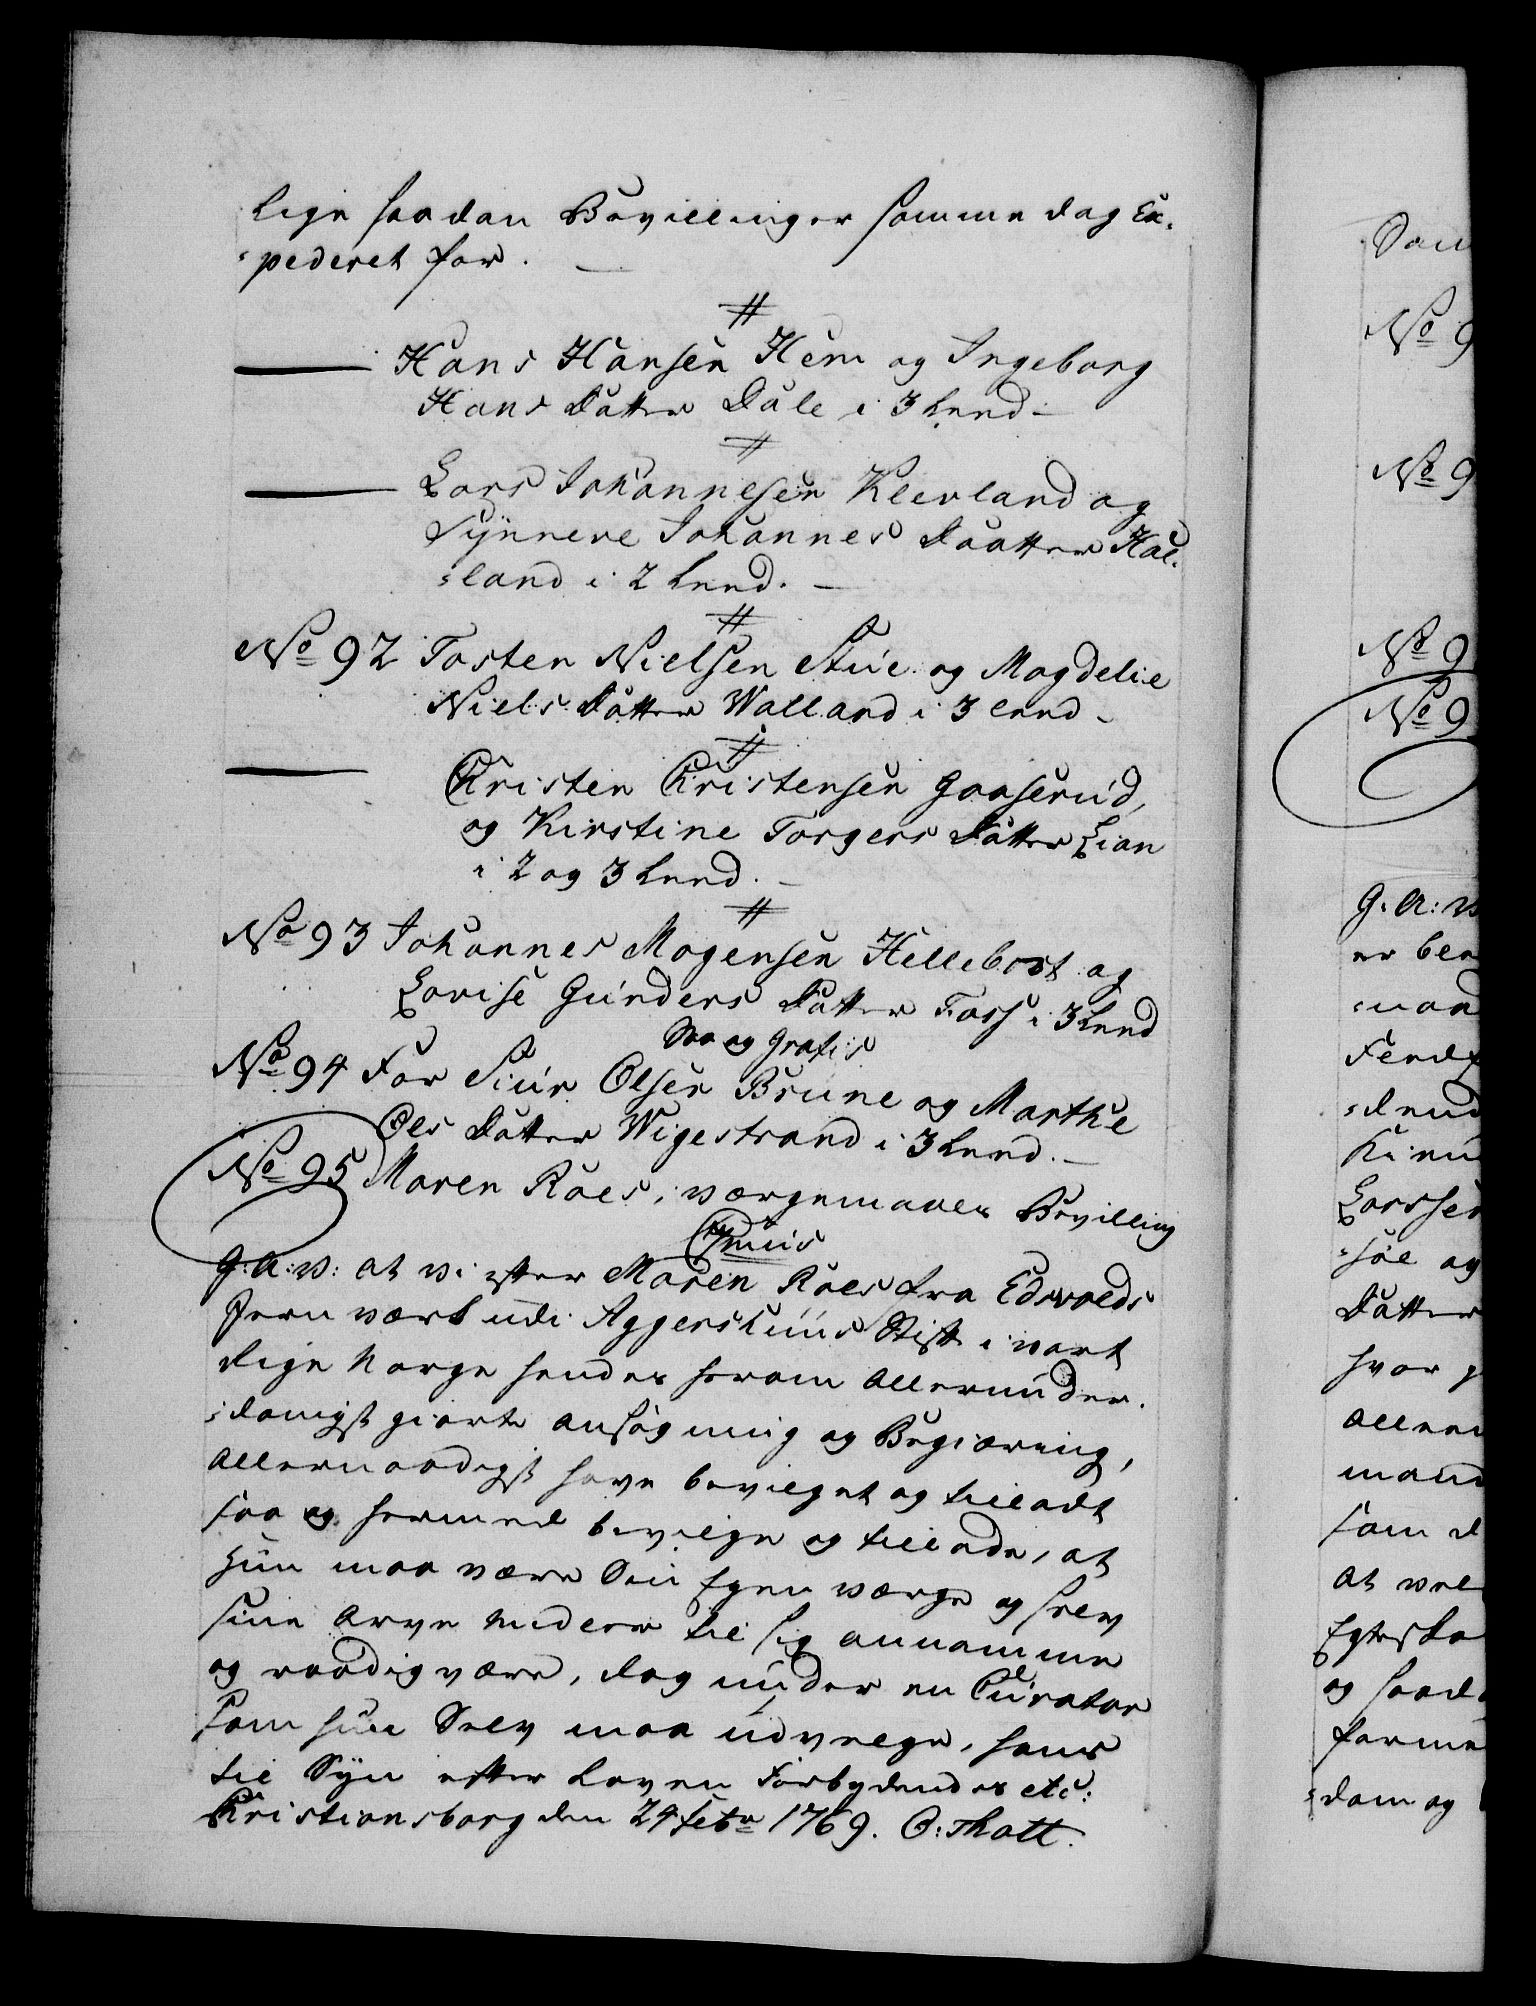 Lige saadan Bevillinger samme dag Ex-
pederet for.
#
Hans Hansen Hem og Ingeborg
Hans Datter Dale i 3 Leed
#
Lars Johannesen Klevland og
Synneve Johannes Daatter Hal-
land i 2 Leed.
#
No 92 Tosten Nielsen Stue og Magdelie
Niels Datter Walland i 3 Leed
#
Christen Christensen Gaaserud,
og Kirstine Torgers Datter Lian
i 2 og 3 Leed.
#
No 93 Johannes Mogensen Hellebost og
Lovise Gunders Datter Foss i 3 Leed
Naa og Gratis
No 94 For Siur Olsen Brune og Marthe
Ols Datter Wigestrand i 3 Leed.
No 95 Maren Roes, værgemaals Bevilling
G: A: V: at vi efter Maren Roes fra Edsvolds
Jern værk udi Aggershuus Stift i vort
Rige Norge hendes herom allerunder-
danigst giorte ansøgning og Begiæring,
allernaadigst have bevilget og tilladt
saa og hermed bevilge og tillade, at
hun maa være Sin Egen værge og Selv
sine Arve Midler til sig annamme
og raadig være, dog under en Curator
som hun Selv maa udvælge, hans
til Syn efter Loven Forbydendes etc:
Christiansborg den 24 Febr 1769. O: Thott.
Sam
No 9
No 9
No 9
No 9
G: A: V